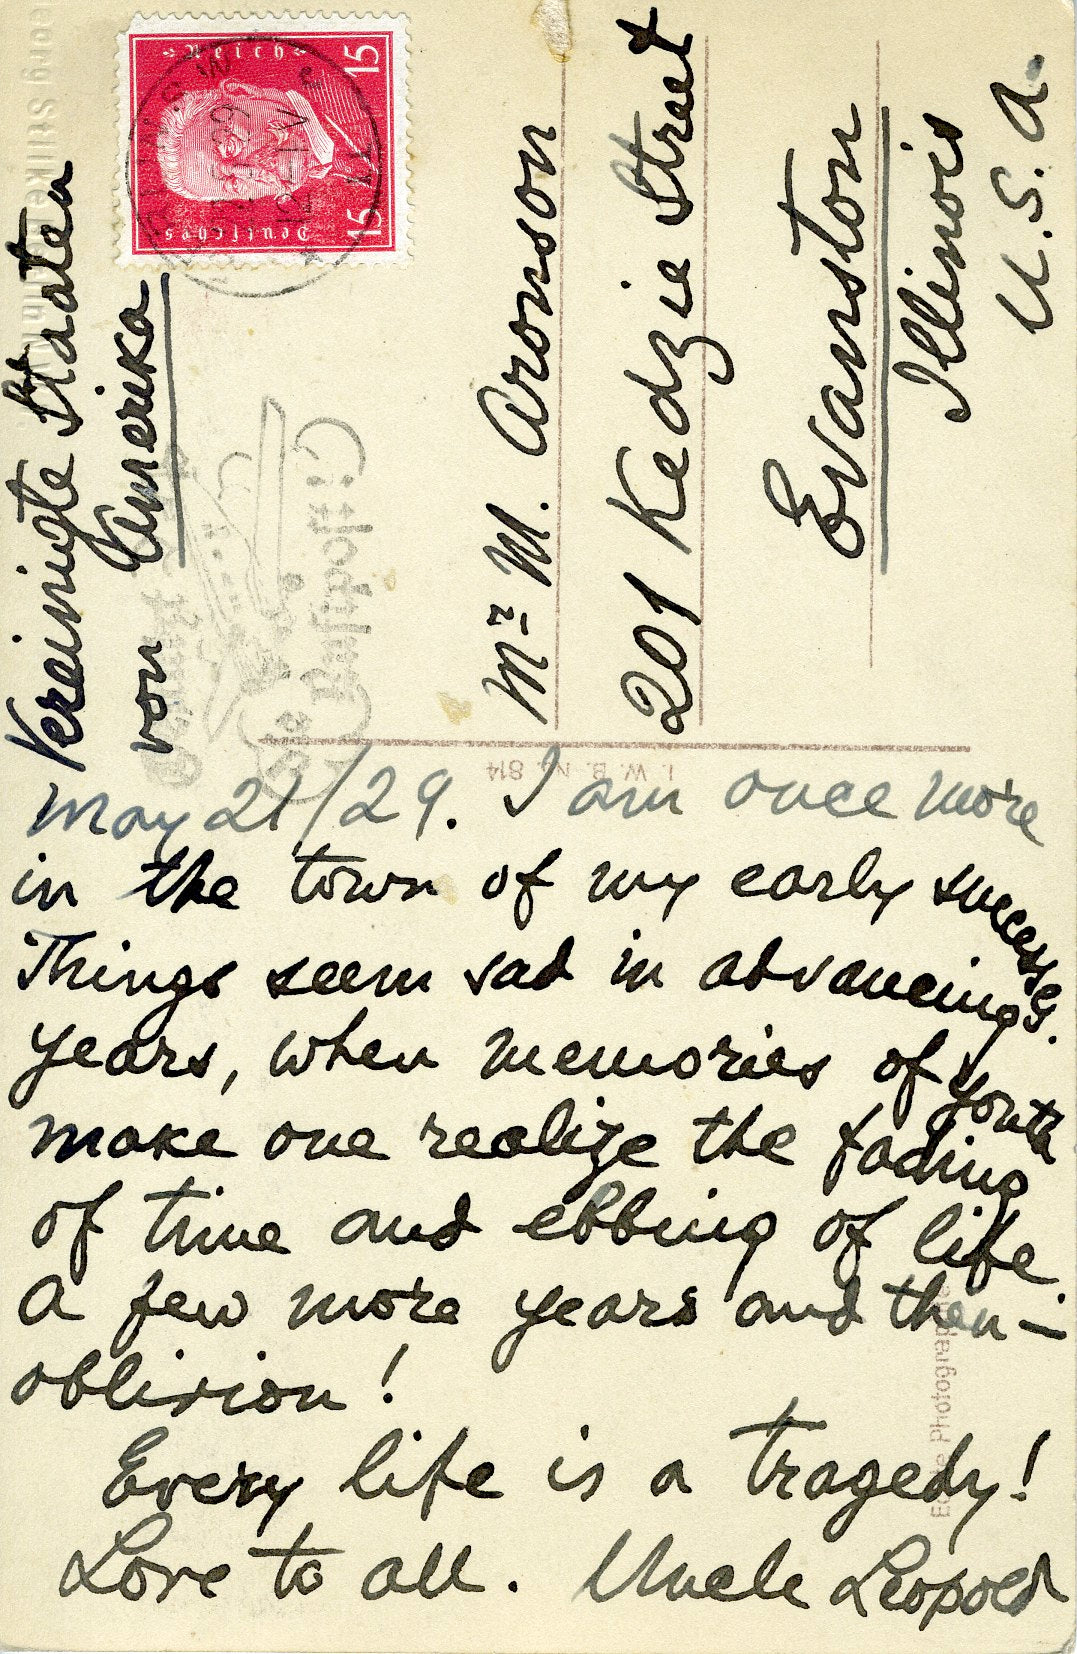 Vereinigte Staaten
von Amerika
Deutsches Reich
15
15
Mr M. Aronson
201 Kedzie Street
Evanston
Illinois
U.S.A.
I. W. B. No. 814
May 21/29. I am once more
in the town of my early successes.
Things seem sad in advancing
years, when memories of youth
make one realize the fading
of time and ebbing of life
A few more years and then —
oblivion!
Every life is a tragedy!
Love to all. Uncle Leopold